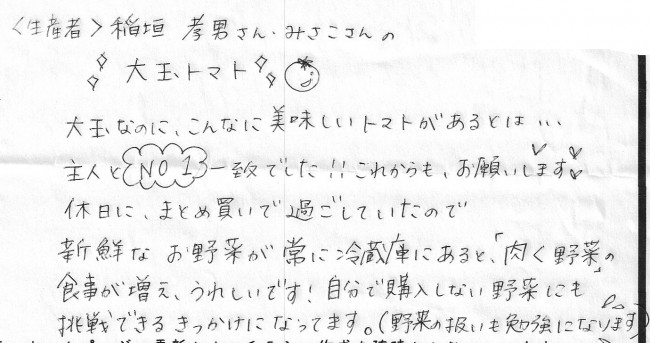 〈生産者〉稲垣 孝男さん・みさこさんの
大玉トマト
大玉なのに、こんなに美味しいトマトがあるとは…
主人とNO1一致でした!!これからも、お願いします
休日に、まとめ買いで過ごしていたので
新鮮な お野菜が常に冷蔵庫にあると、「肉く野菜」の
食事が増え、うれしいです!自分で購入しない野菜にも
挑戦できるきっかけになってます。(野菜の扱いも勉強になります)